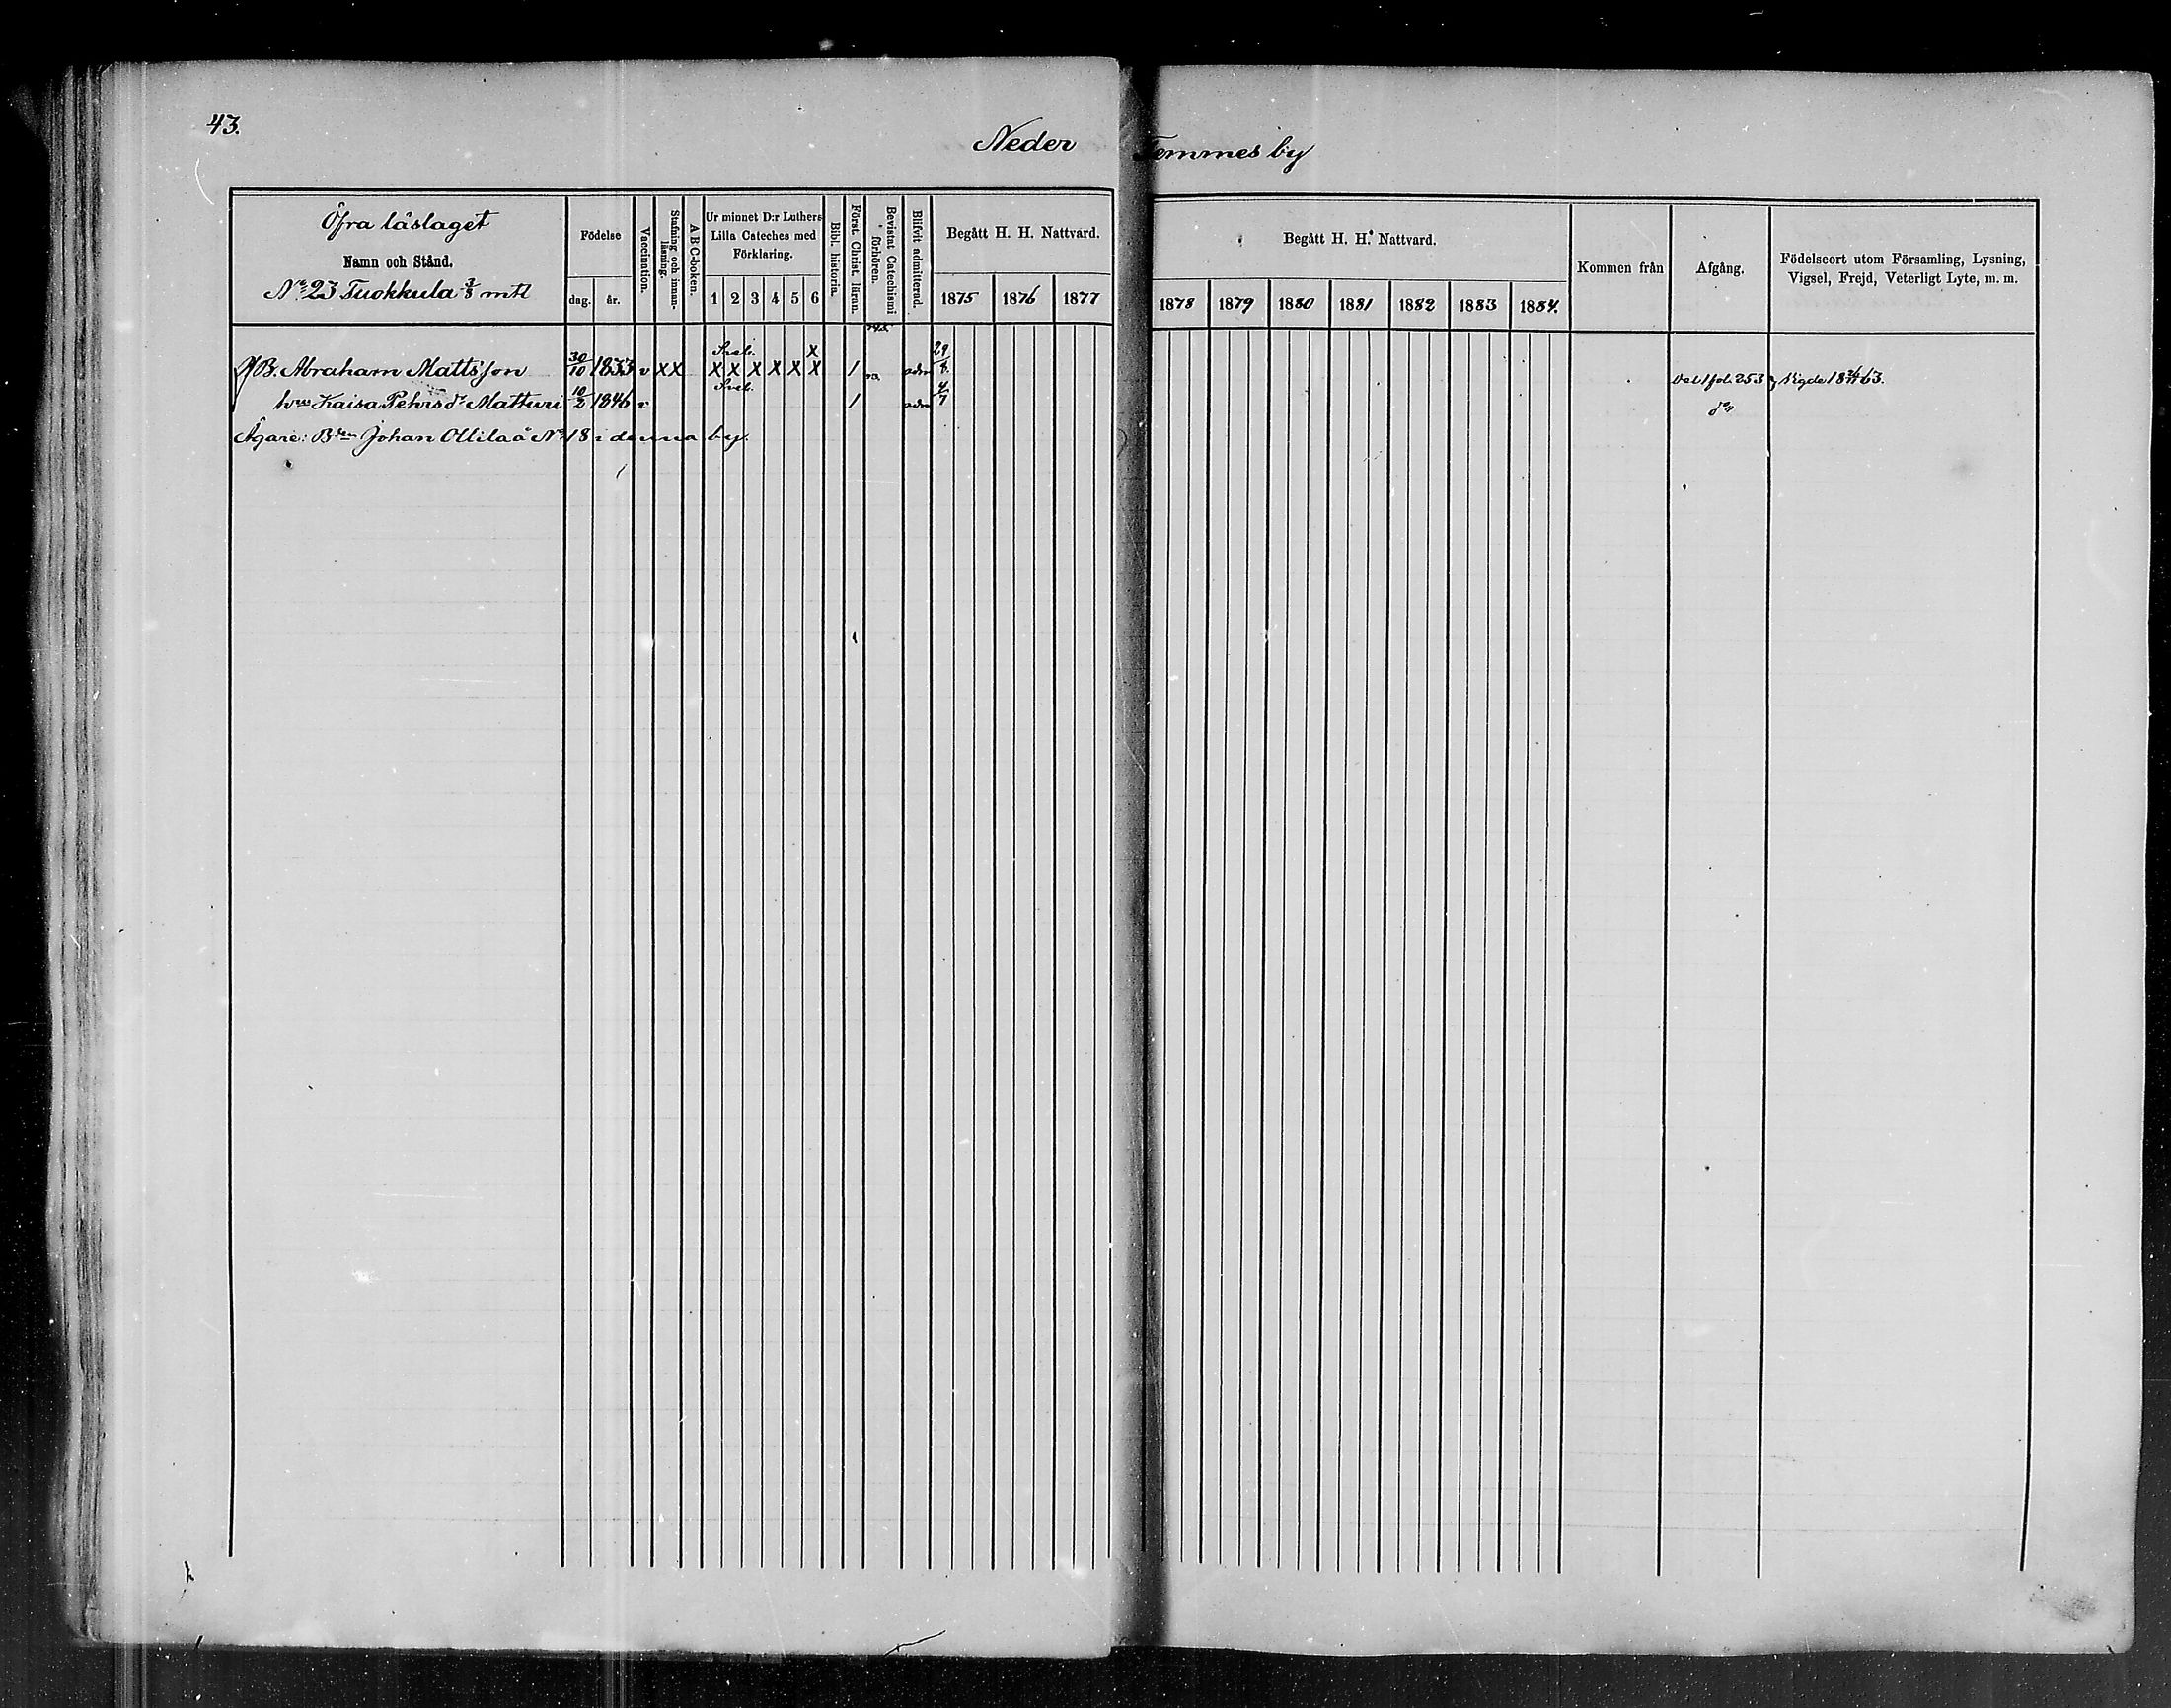 43.
Neder Temmes by
Öfra läslaget
Namn och Stånd.
No 23 Tuokkula 3/8 mtl
Födelse
dag. år.
Vaccination.
Stafning och innan-läsning.
A B C-boken.
Ur minnet D:r Luthers
Lilla Cateches med
Förklaring.
1 2 3 4 5 6
Bibl. historia.
Först. Christ. läran.
Bevistat Catechismi förhören.
Blifvit admitterad.
Begått H. H. Nattvard.
1875 1876 1877
Begått H. H. Nattvard.
1878 1879 1880 1881 1882 1883 1884.
Kommen från
Afgång.
Födelseort utom Församling, Lysning,
Vigsel, Frejd, Veterligt Lyte, m. m.
B. Abraham Mattsson 30/10 1833 v X X X X X X X X X 1 adm 29/8 fol. 253 Vigde 1863.
hu Kaisa Pehrsdr Matturi 10/2 1846 v 1 adm 4/7 do
Ägare: Bdn Johan Ollila å No 18 i denna by.